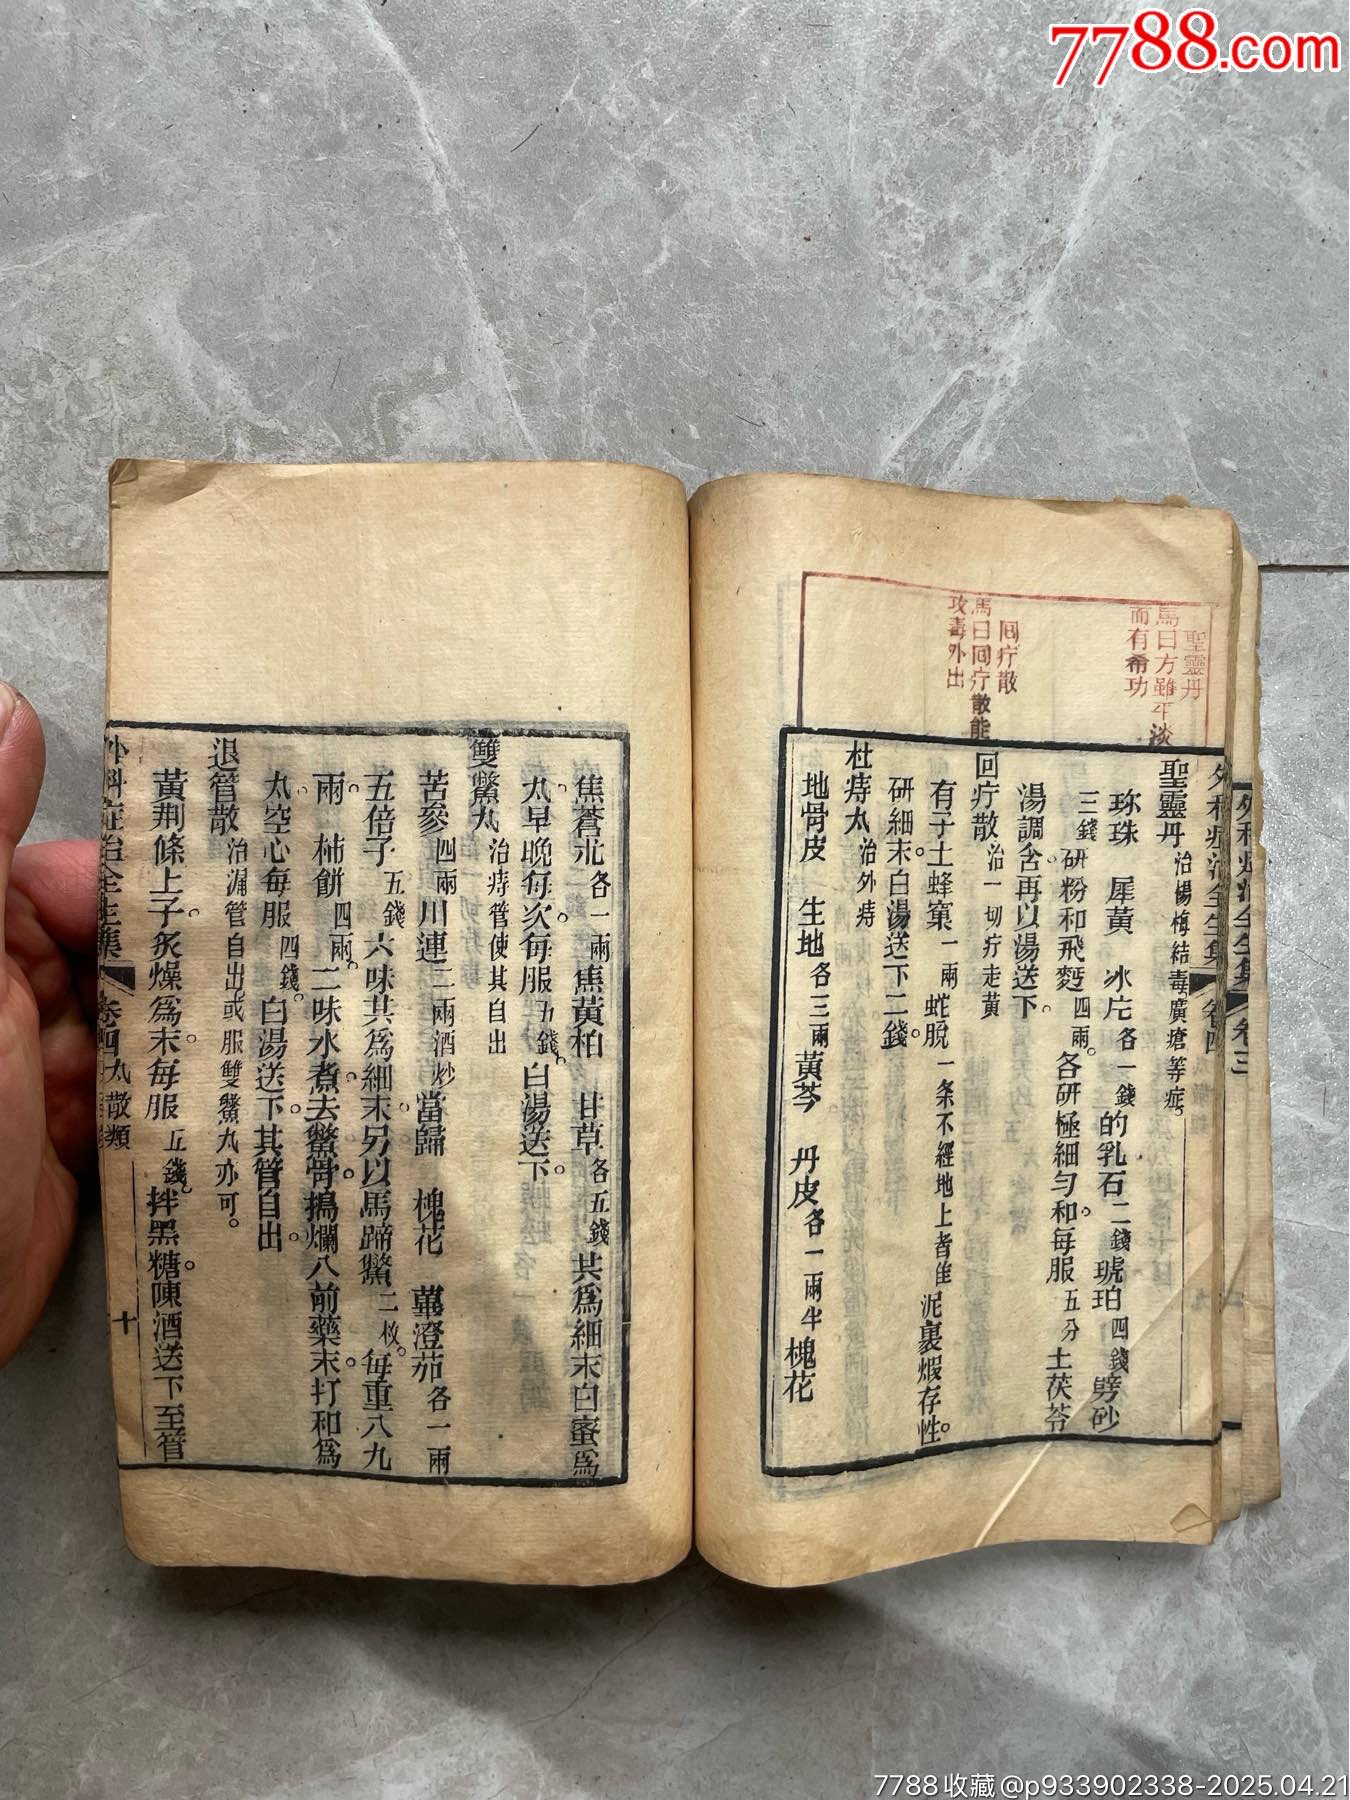 7788.com
聖靈丹
馬曰方雖平淡
而有希功
回疔散
馬曰回疔散能
攻毒外出
外科症治全生集 卷三
外科症治全生集 卷四
聖靈丹 治楊梅結毒廣瘡等症。
珍珠 犀黃 冰片各一錢的乳石二錢琥珀四錢劈砂
三錢研粉和飛麪四兩。各研極細勻和每服五分土茯苓
湯調含再以湯送下。
回疔散 治一切疔走黃
有子土蜂窠一兩蛇脫一条不經地上者佳泥裹煆存性。
研細末白湯送下二錢。
杜痔丸 治外痔
地骨皮 生地各三兩黃芩 丹皮各一兩半槐花
焦蒼朮各一兩焦黃柏 甘草各五錢共為細末白蜜為
丸早晚每次每服五錢。白湯送下。
雙鱉丸 治痔管使其自出
苦參四兩川連二兩酒炒當歸 槐花 蓽澄茄各一兩
五倍子五錢六味共為細末另以馬蹄鱉二枚。每重八九
兩。柿餅四兩。二味水煮去鱉骨搗爛入前藥末打和為
丸空心每服四錢。白湯送下其管自出。
退管散 治漏管自出或服雙鱉丸亦可。
黃荆條上子炙燥為末每服五錢。拌黑糖陳酒送下至管
外科症治全生集 卷四 丸散類 十
7788收藏@p933902338-2025.04.21